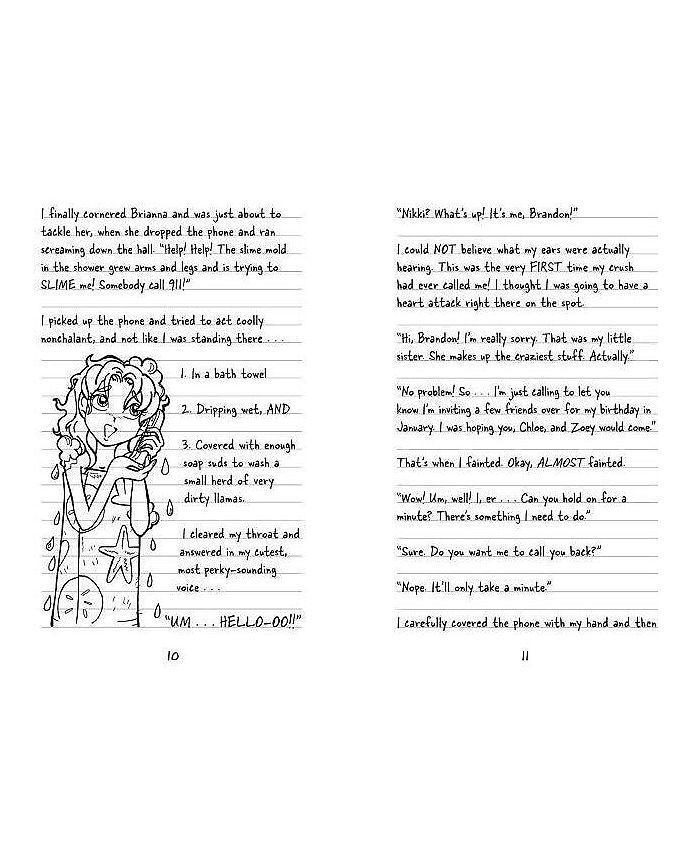 I finally cornered Brianna and was just about to
tackle her, when she dropped the phone and ran
screaming down the hall. "Help! Help! The slime mold
in the shower grew arms and legs and is trying to
SLIME me! Somebody call 911!"
I picked up the phone and tried to act coolly
nonchalant, and not like I was standing there . . .
1. In a bath towel
2. Dripping wet, AND
3. Covered with enough
soap suds to wash a
small herd of very
dirty llamas.
I cleared my throat and
answered in my cutest,
most perky-sounding
voice . . .
"UM . . . HELLO-OO!!"
10
"Nikki? What's up! It's me, Brandon!"
I could NOT believe what my ears were actually
hearing. This was the very FIRST time my crush
had ever called me! I thought I was going to have a
heart attack right there on the spot.
"Hi, Brandon! I'm really sorry. That was my little
sister. She makes up the craziest stuff. Actually."
"No problem! So . . . I'm just calling to let you
know I'm inviting a few friends over for my birthday in
January. I was hoping you, Chloe, and Zoey would come."
That's when I fainted. Okay, ALMOST fainted.
"Wow! Um, well! I, er . . . Can you hold on for a
minute? There's something I need to do."
"Sure. Do you want me to call you back?"
"Nope. It'll only take a minute."
I carefully covered the phone with my hand and then
11